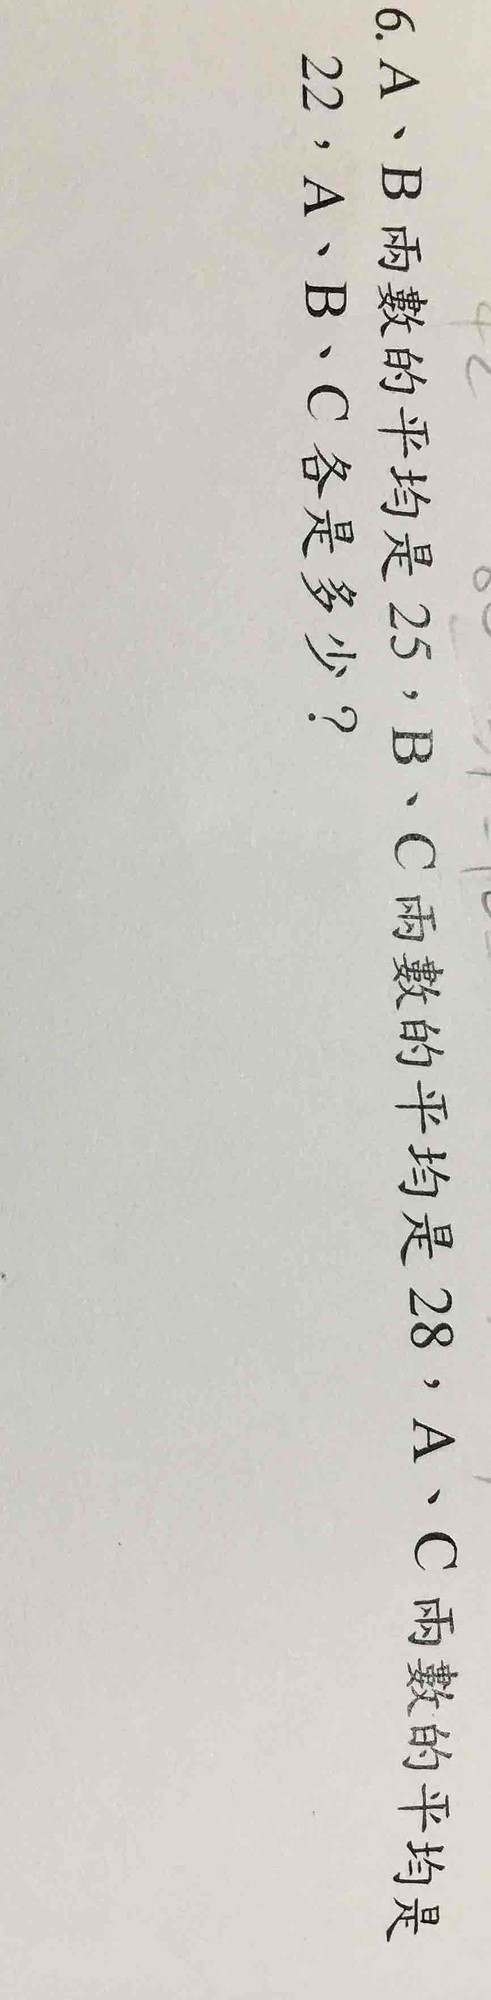 6. A、B 兩數的平均是 25，B、C 兩數的平均是 28，A、C 兩數的平均是
22，A、B、C 各是多少？